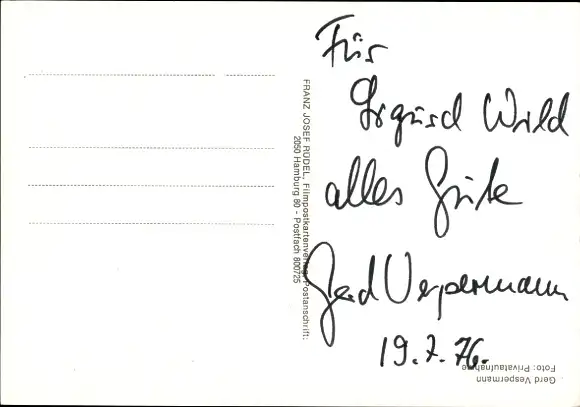 Für
Wild
alles Gute
Gerd Vespermann
19.7.76.
FRANZ JOSEF RÜDEL, Filmpostkartenverlag, Postanschrift:
2050 Hamburg 80 - Postfach 800725
Gerd Vespermann
Foto: Privataufnahme